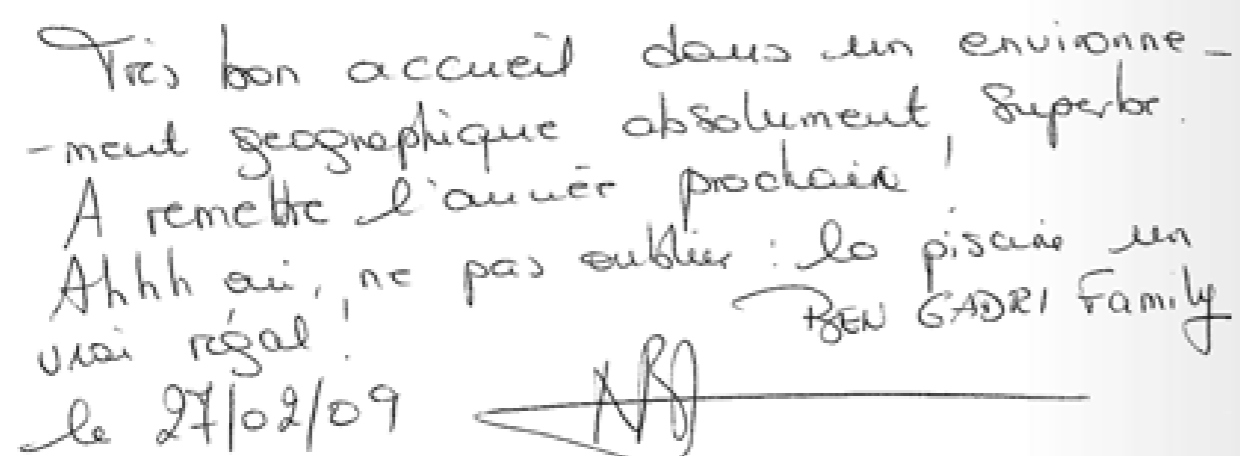 Très bon accueil dans un environne-
-ment geographique absolument superbe.
A remettre l'année prochain !
Ahhh oui, ne pas oublier : la piscine un
vrai régal !
BEN GADRI Family
le 27/02/09